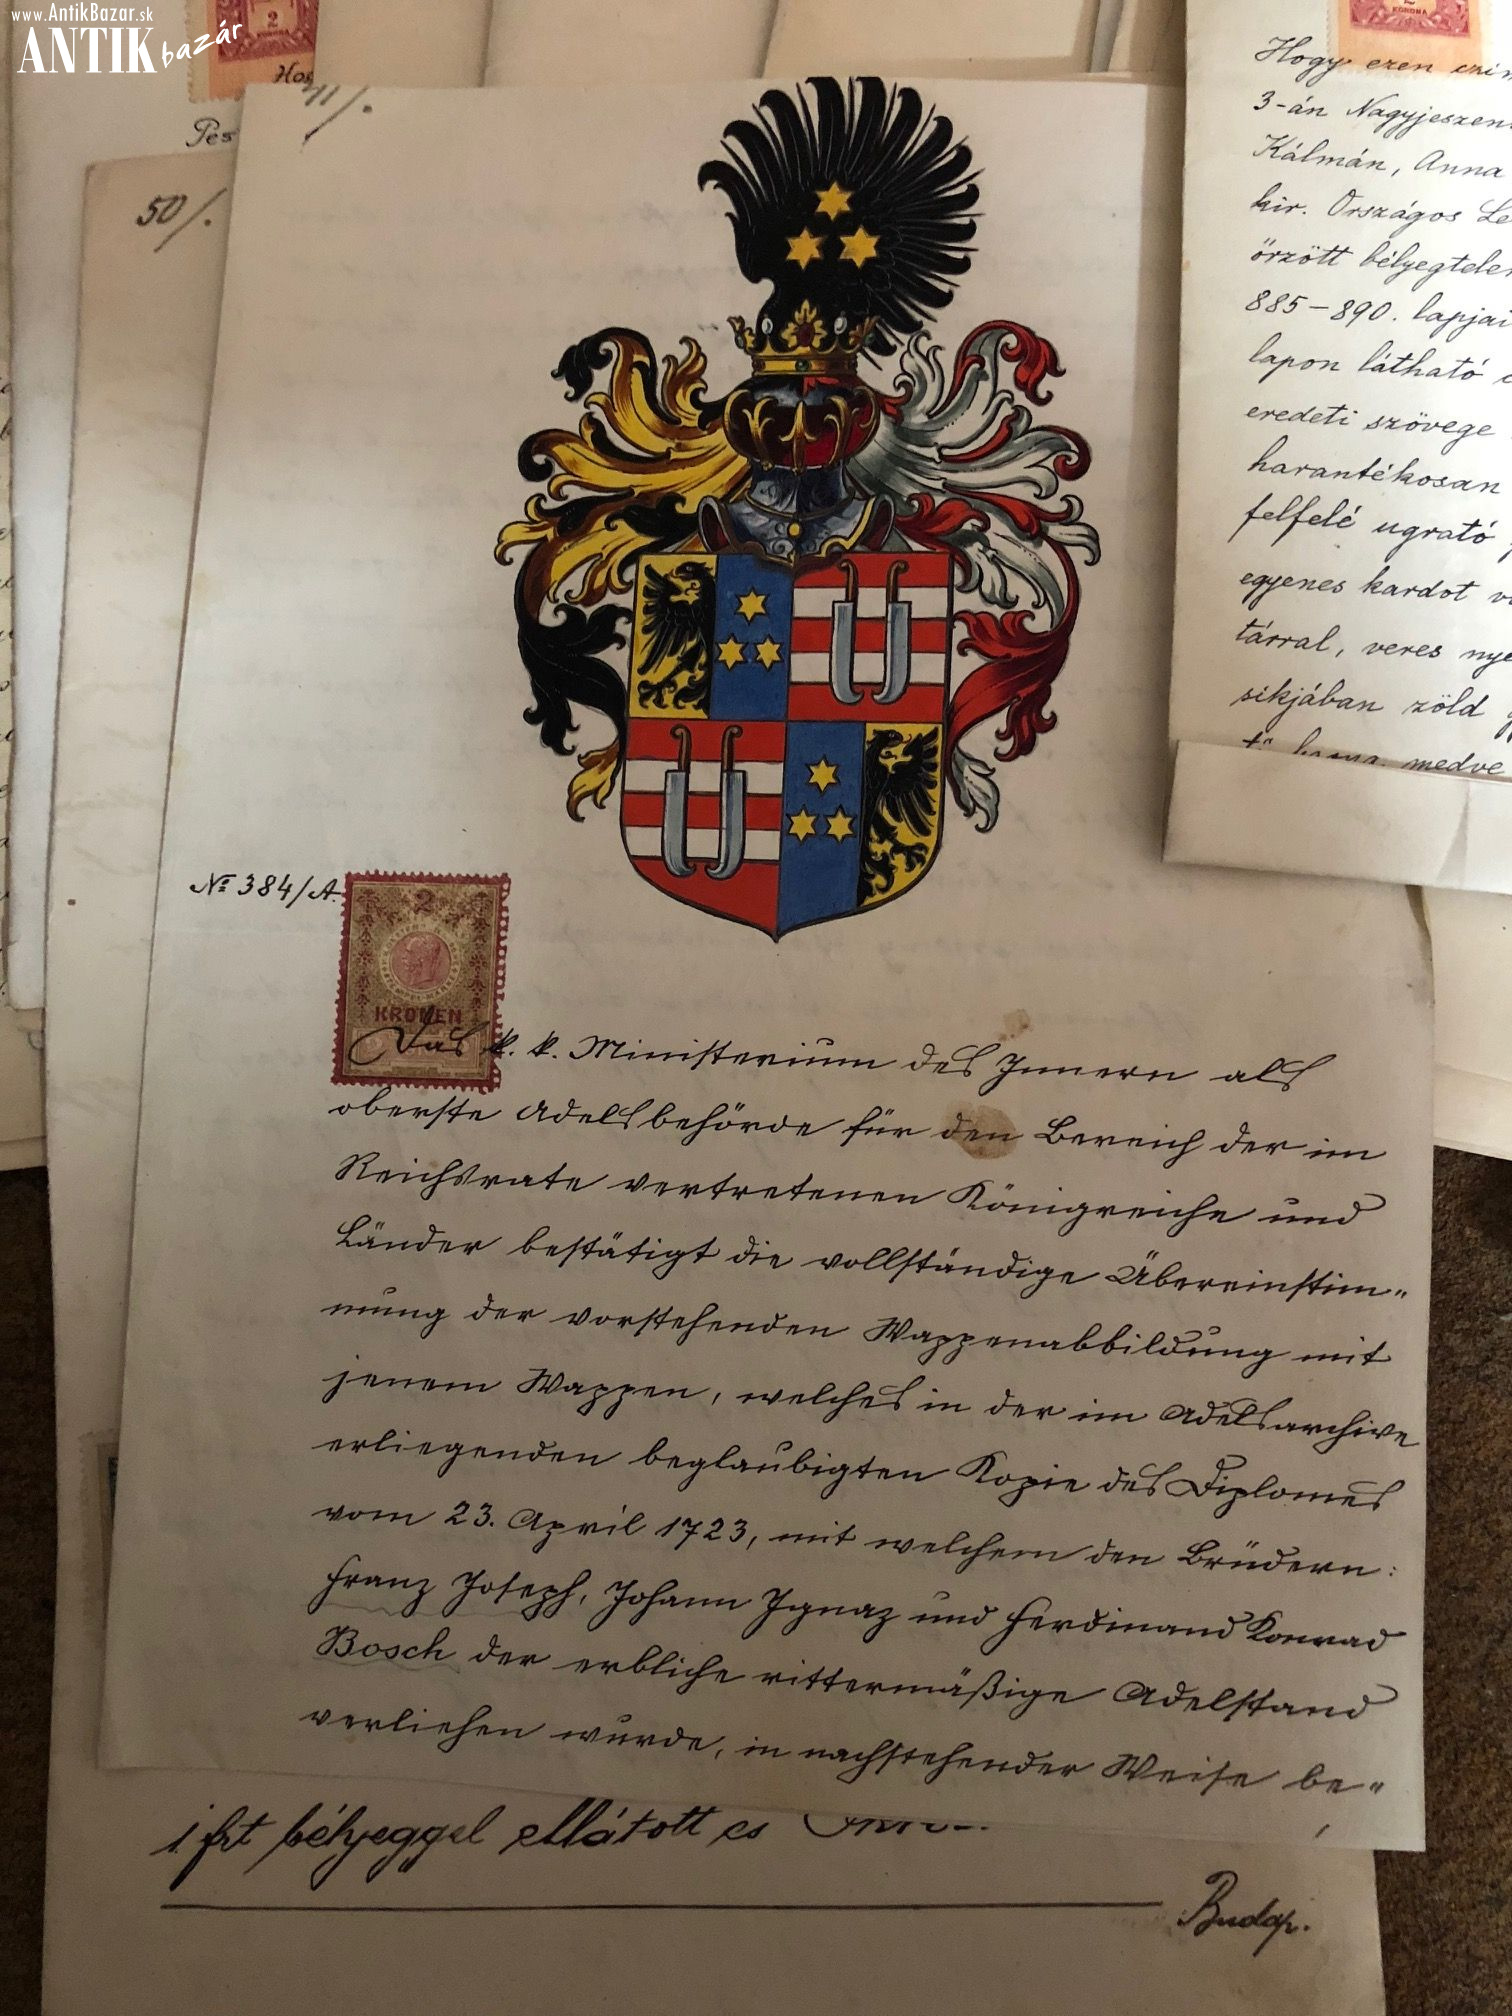 www.AntikBazar.sk
ANTIK bazár
2
KORONA
Pes
50/.
KORONA
Hogy ezen
3-án Nagyjeszen
Kálmán, Anna
kir. Országos Le
őrzött bélyegtelen
885-890. lapjai
lapon látható
eredeti szövege
harántékosan
felfelé ugrató
egyenes kardot v
tárral, veres nye
sikjában zöld
medve
№ 384/A.
2
KRONEN
Das k. k. Ministerium des Innern als
oberste Adelsbehörde für den Bereich der im
Reichsrate vertretenen Königreiche und
Länder bestätigt die vollständige Übereinstim„
mung der vorstehenden Wappenabbildung mit
jenem Wappen, welches in der im Adelsarchive
erliegenden beglaubigten Kopie des Diplomes
vom 23. April 1723, mit welchem den Brüdern:
Franz Joseph, Johann Ignaz und Ferdinand Konrad
Bosch der erbliche rittermäßige Adelstand
verliehen wurde, in nachstehender Weise be„
1 frt bélyeggel ellátott és
Budap.